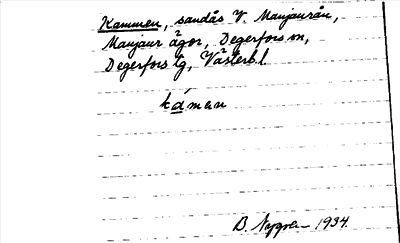 Kammen, sandås V. Manjaurån,
Manjaur ägor, Degerfors sn,
Degerfors tg, Västerb.l.
káman
B. Nygren 1934.